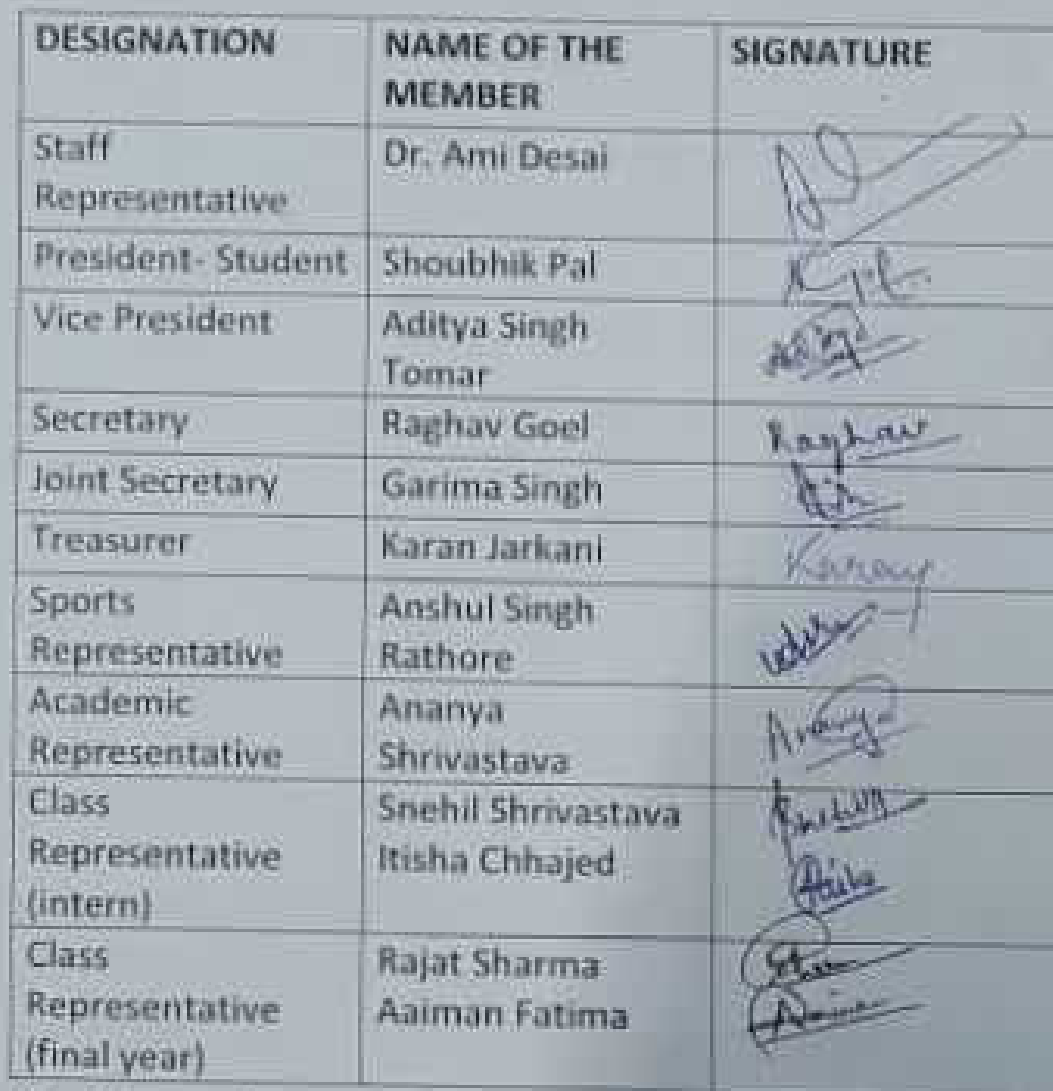 DESIGNATION
NAME OF THE
MEMBER
SIGNATURE
Staff
Representative
Dr. Ami Desai
President- Student
Shoubhik Pal
Vice President
Aditya Singh
Tomar
Secretary
Raghav Goel
Raghav
Joint Secretary
Garima Singh
Treasurer
Karan Jarkani
Sports
Representative
Anshul Singh
Rathore
Academic
Representative
Ananya
Shrivastava
Ananya
Class
Representative
(intern)
Snehil Shrivastava
Itisha Chhajed
Class
Representative
(final year)
Rajat Sharma
Aaiman Fatima